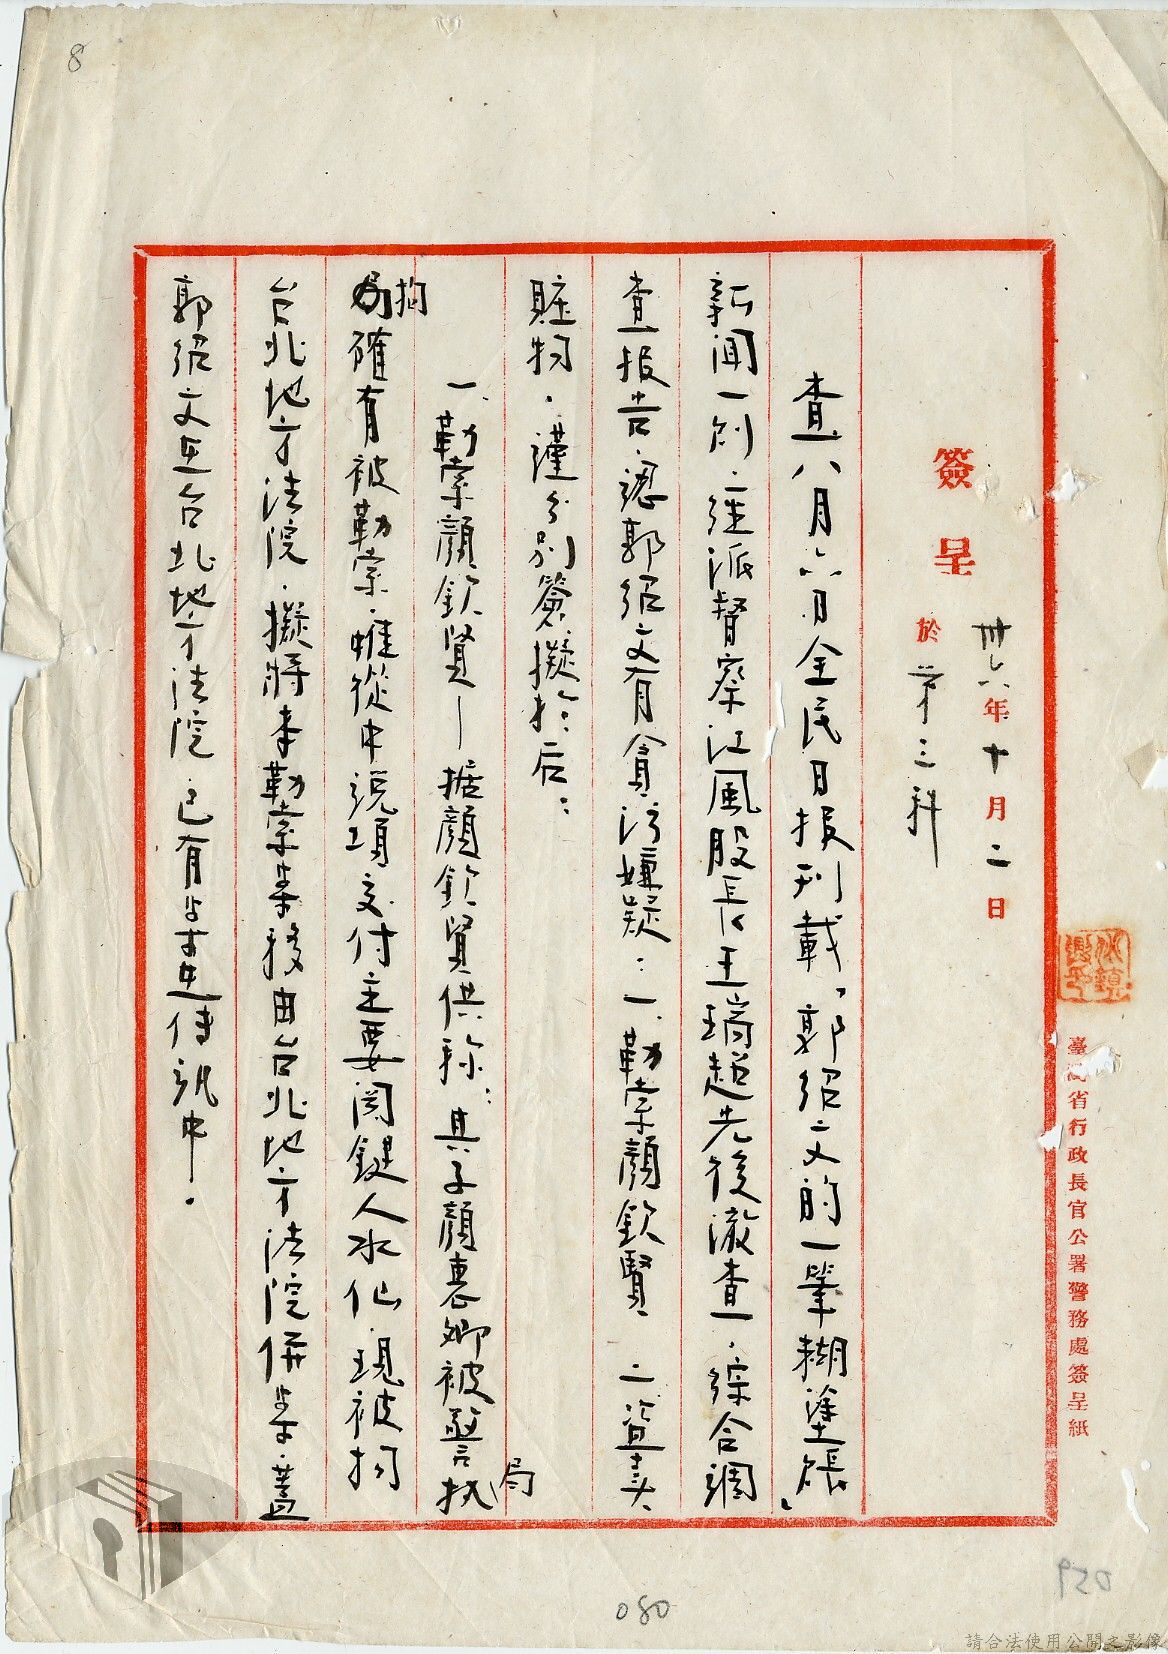 8
簽呈
卅六年十月二日
於第三科
查八月六日全民日報刊載「郭紹文的一筆糊塗賬」
新聞一則,經派督察江風股長王瑞超先後澈查,綜合調
查報告,認郭紹文有貪污嫌疑:一、勒索顏欽賢 二盜賣
賍物,謹分別簽擬於后:
一、勒索顏欽賢—据顏欽賢供稱:其子顏惠卿被警局
拘確有被勒索,惟從中說項交付主要関鍵人水仙,現被拘
台北地方法院,擬將本勒索案移由台北地方法院併案,蓋
郭紹文在台北地方法院,已有案在傳訊中。
臺灣省行政長官公署警務處簽呈紙
080
請合法使用公開之影像